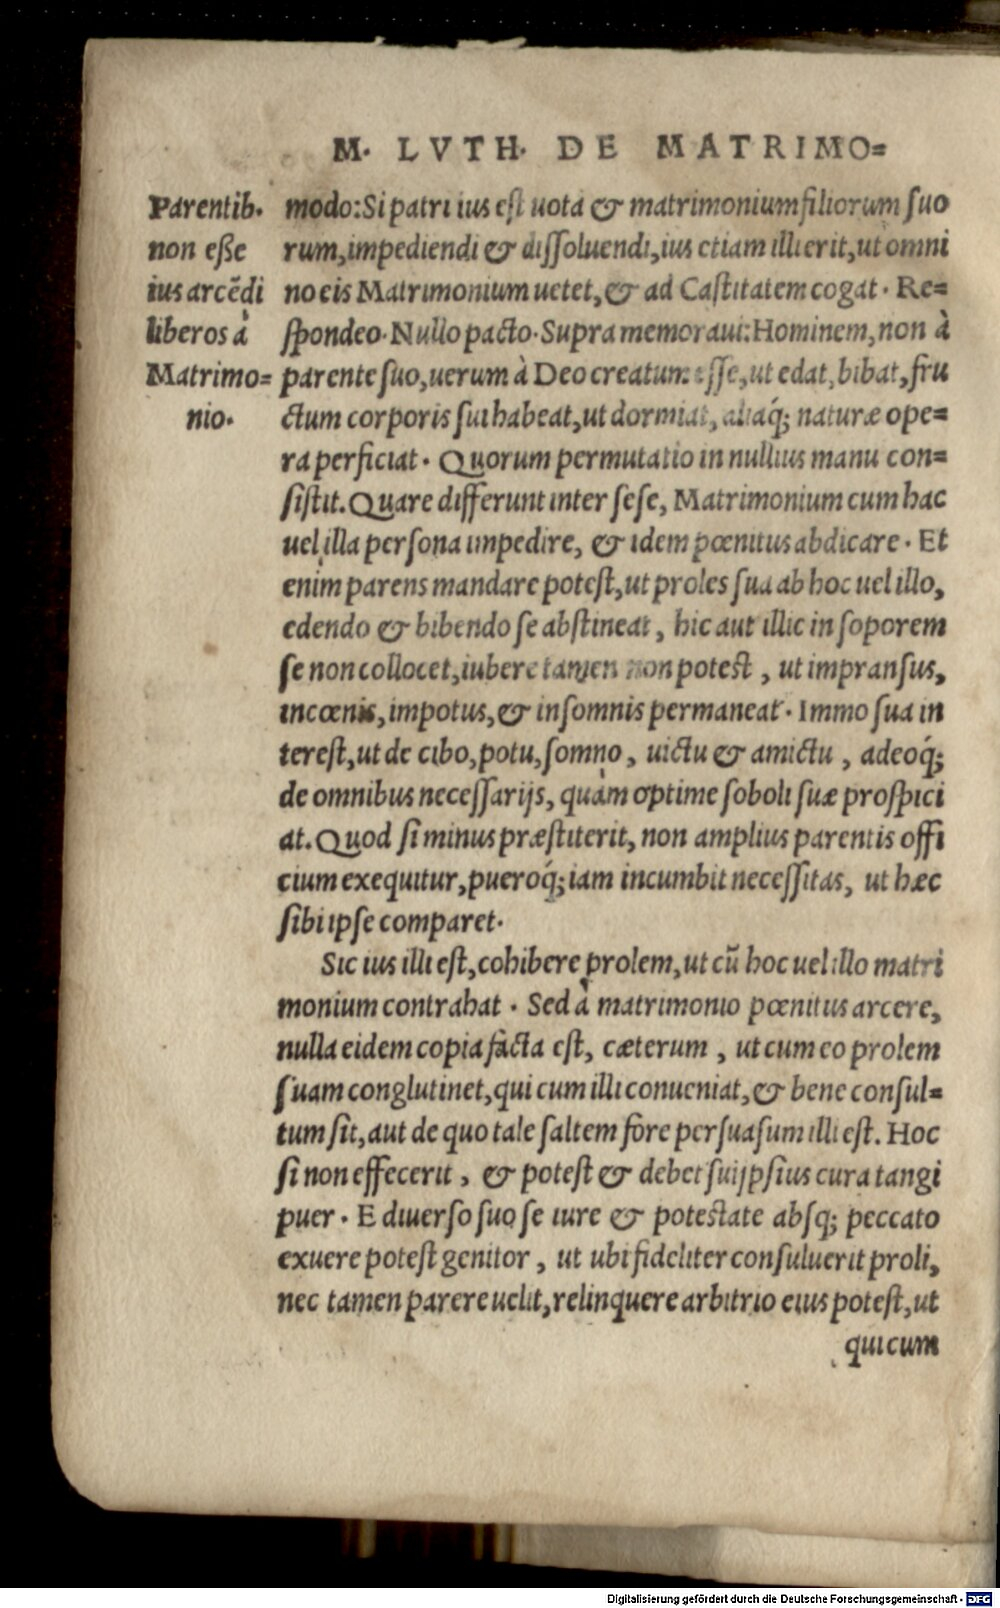 M. LVTH. DE MATRIMO=
Parentib.
non eße
ius arcēdi
liberos à
Matrimo=
nio.
modo: Si patri ius est uota & matrimonium filiorum suo
rum, impediendi & dissoluendi, ius etiam illi erit, ut omni
no eis Matrimonium uetet, & ad Castitatem cogat. Re=
spondeo. Nullo pacto. Supra memoraui: Hominem, non à
parente suo, uerum à Deo creatum esse, ut edat, bibat, fru
ctum corporis sui habeat, ut dormiat, aliaq́; naturæ ope=
ra perficiat. Quorum permutatio in nullius manu con=
sistit. Quare differunt inter sese, Matrimonium cum hac
uel illa persona impedire, & idem pœnitus abdicare. Et
enim parens mandare potest, ut proles sua ab hoc uel illo,
edendo & bibendo se abstineat, hic aut illic in soporem
se non collocet, iubere tamen non potest, ut impransus,
incœnis, impotus, & insomnis permaneat. Immo sua in
terest, ut de cibo, potu, somno, uictu & amictu, adeoq́;
de omnibus necessarijs, quàm optime soboli suæ prospici
at. Quod si minus præstiterit, non amplius parentis offi
cium exequitur, pueroq́; iam incumbit necessitas, ut hæc
sibi ipse comparet.
Sic ius illi est, cohibere prolem, ut cū hoc uel illo matri
monium contrahat. Sed à matrimonio pœnitus arcere,
nulla eidem copia facta est, cæterum, ut cum eo prolem
suam conglutinet, qui cum illi conueniat, & bene consul=
tum sit, aut de quo tale saltem fore persuasum illi est. Hoc
si non effecerit, & potest & debet suijpsius cura tangi
puer. E diuerso suo se iure & potestate absq; peccato
exuere potest genitor, ut ubi fideliter consuluerit proli,
nec tamen parere uelit, relinquere arbitrio eius potest, ut
quicum
Digitalisierung gefördert durch die Deutsche Forschungsgemeinschaft - DFG